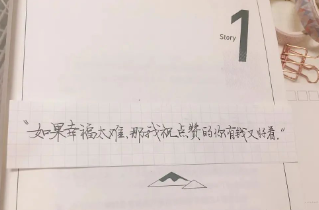 Story 1
“如果幸福太难,那我祝点赞的你有钱又好看.”